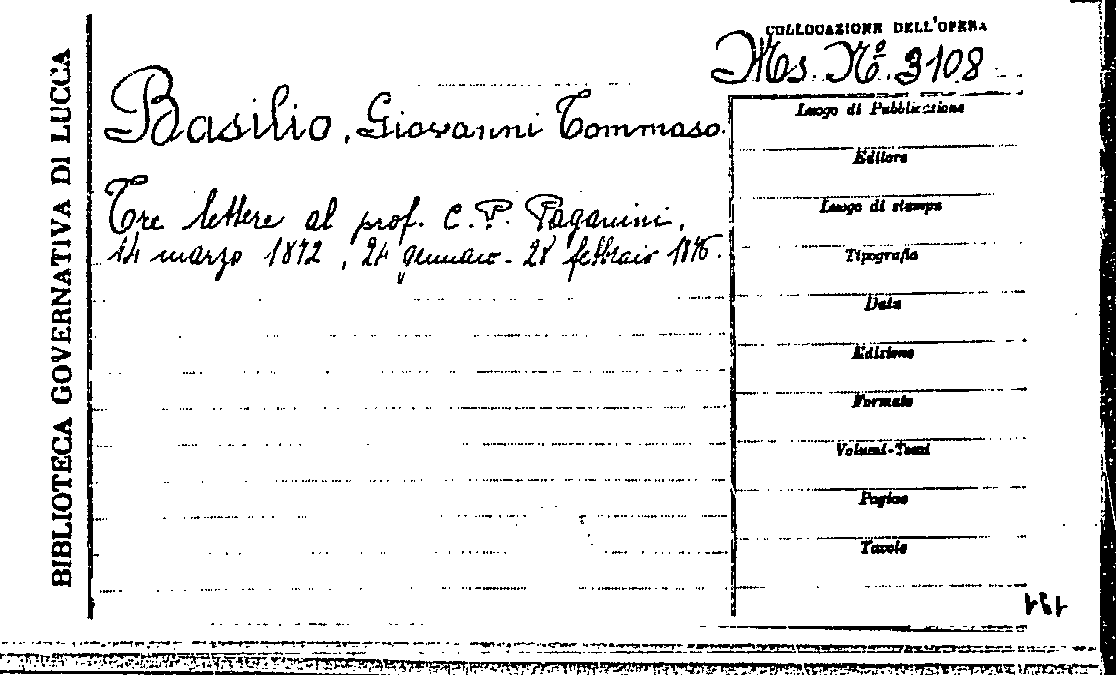 BIBLIOTECA GOVERNATIVA DI LUCCA
COLLOCAZIONE DELL'OPERA
Ms. Nº. 3108
Basilio, Giovanni Tommaso.
Tre lettere al prof. C. P. Paganini,
14 marzo 1872, 24 gennaio - 28 febbraio
Luogo di Pubblicazione
Editore
Luogo di stampa
Tipografia
Data
Edizione
Formato
Volumi-Tomi
Pagine
Tavole